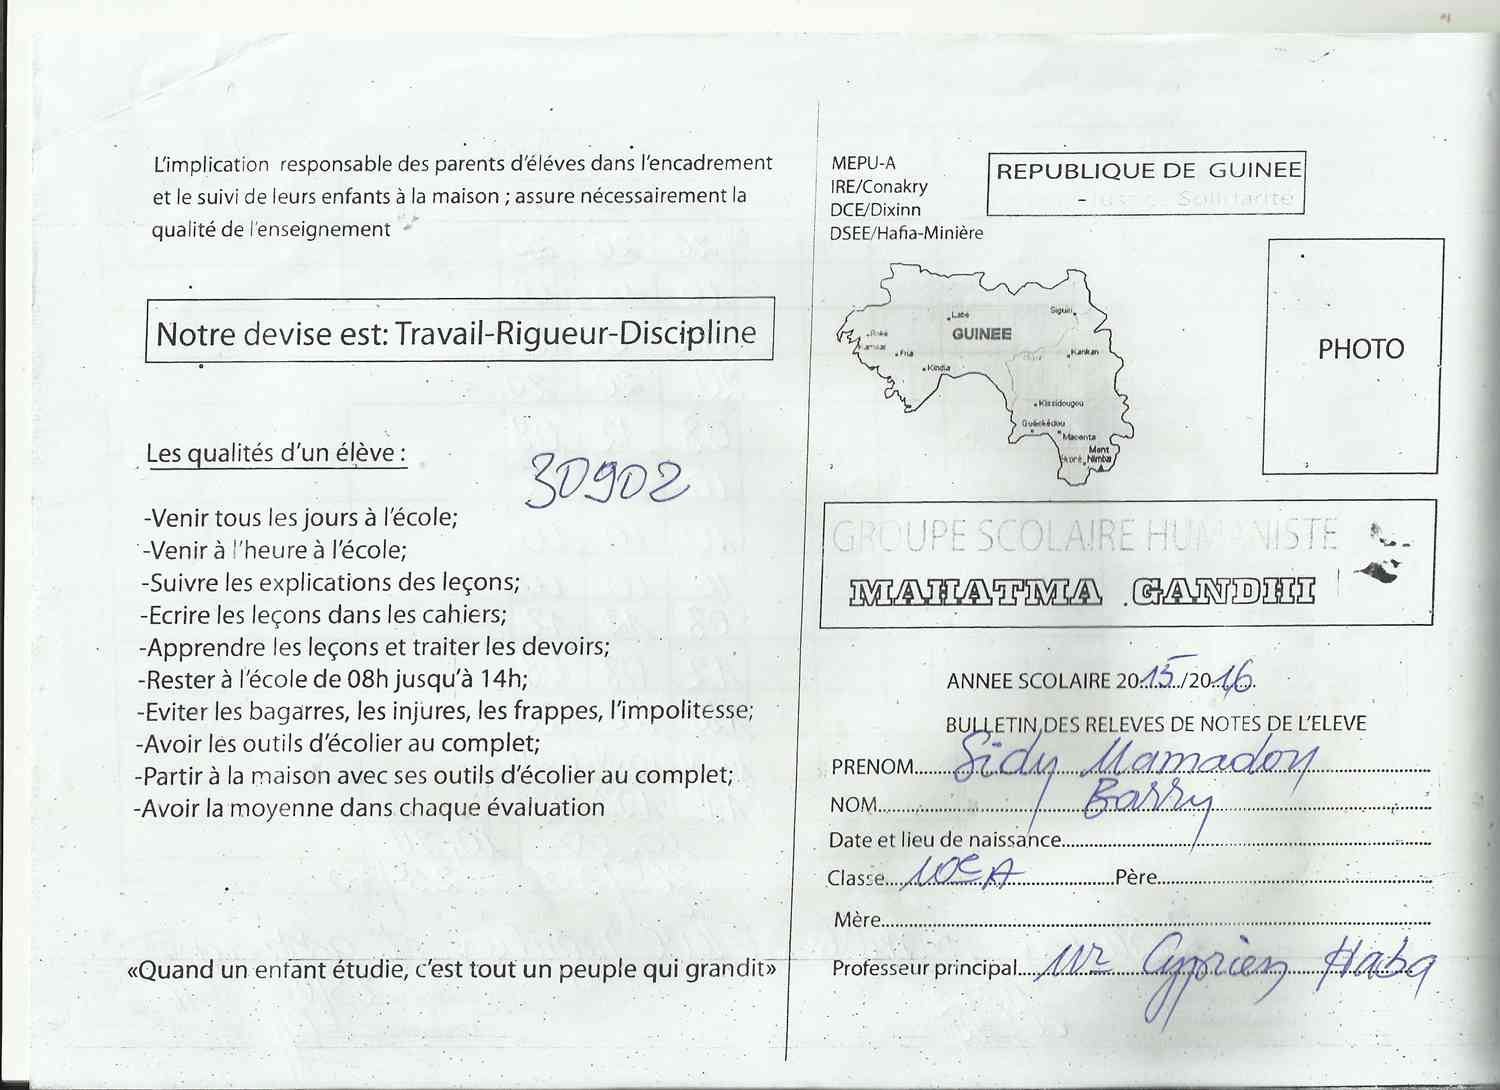 L'implication responsable des parents d'éléves dans l'encadrement
et le suivi de leurs enfants à la maison ; assure nécessairement la
qualité de l'enseignement
Notre devise est: Travail-Rigueur-Discipline
Les qualités d'un élève :
30902
-Venir tous les jours à l'école;
-Venir à l'heure à l'école;
-Suivre les explications des leçons;
-Ecrire les leçons dans les cahiers;
-Apprendre les leçons et traiter les devoirs;
-Rester à l'école de 08h jusqu'à 14h;
-Eviter les bagarres, les injures, les frappes, l'impolitesse;
-Avoir les outils d'écolier au complet;
-Partir à la maison avec ses outils d'écolier au complet;
-Avoir la moyenne dans chaque évaluation
«Quand un enfant étudie, c'est tout un peuple qui grandit»
MEPU-A
IRE/Conakry
DCE/Dixinn
DSEE/Hafia-Minière
REPUBLIQUE DE GUINEE
- Justice Solidarité
Labé
Siguiri
GUINEE
Boké
Kamsar
Fria
Kankan
Kindia
Kissidougou
Guéckédou
Macenta
Mont
Nimba
PHOTO
GROUPE SCOLAIRE HUMANISTE
MAHATMA GANDHI
ANNEE SCOLAIRE 2015/2016
BULLETIN DES RELEVES DE NOTES DE L'ELEVE
PRENOM Sidy Mamadou
NOM Barry
Date et lieu de naissance
Classe 10e A Père
Mère
Professeur principal Mr Cyprien Haba